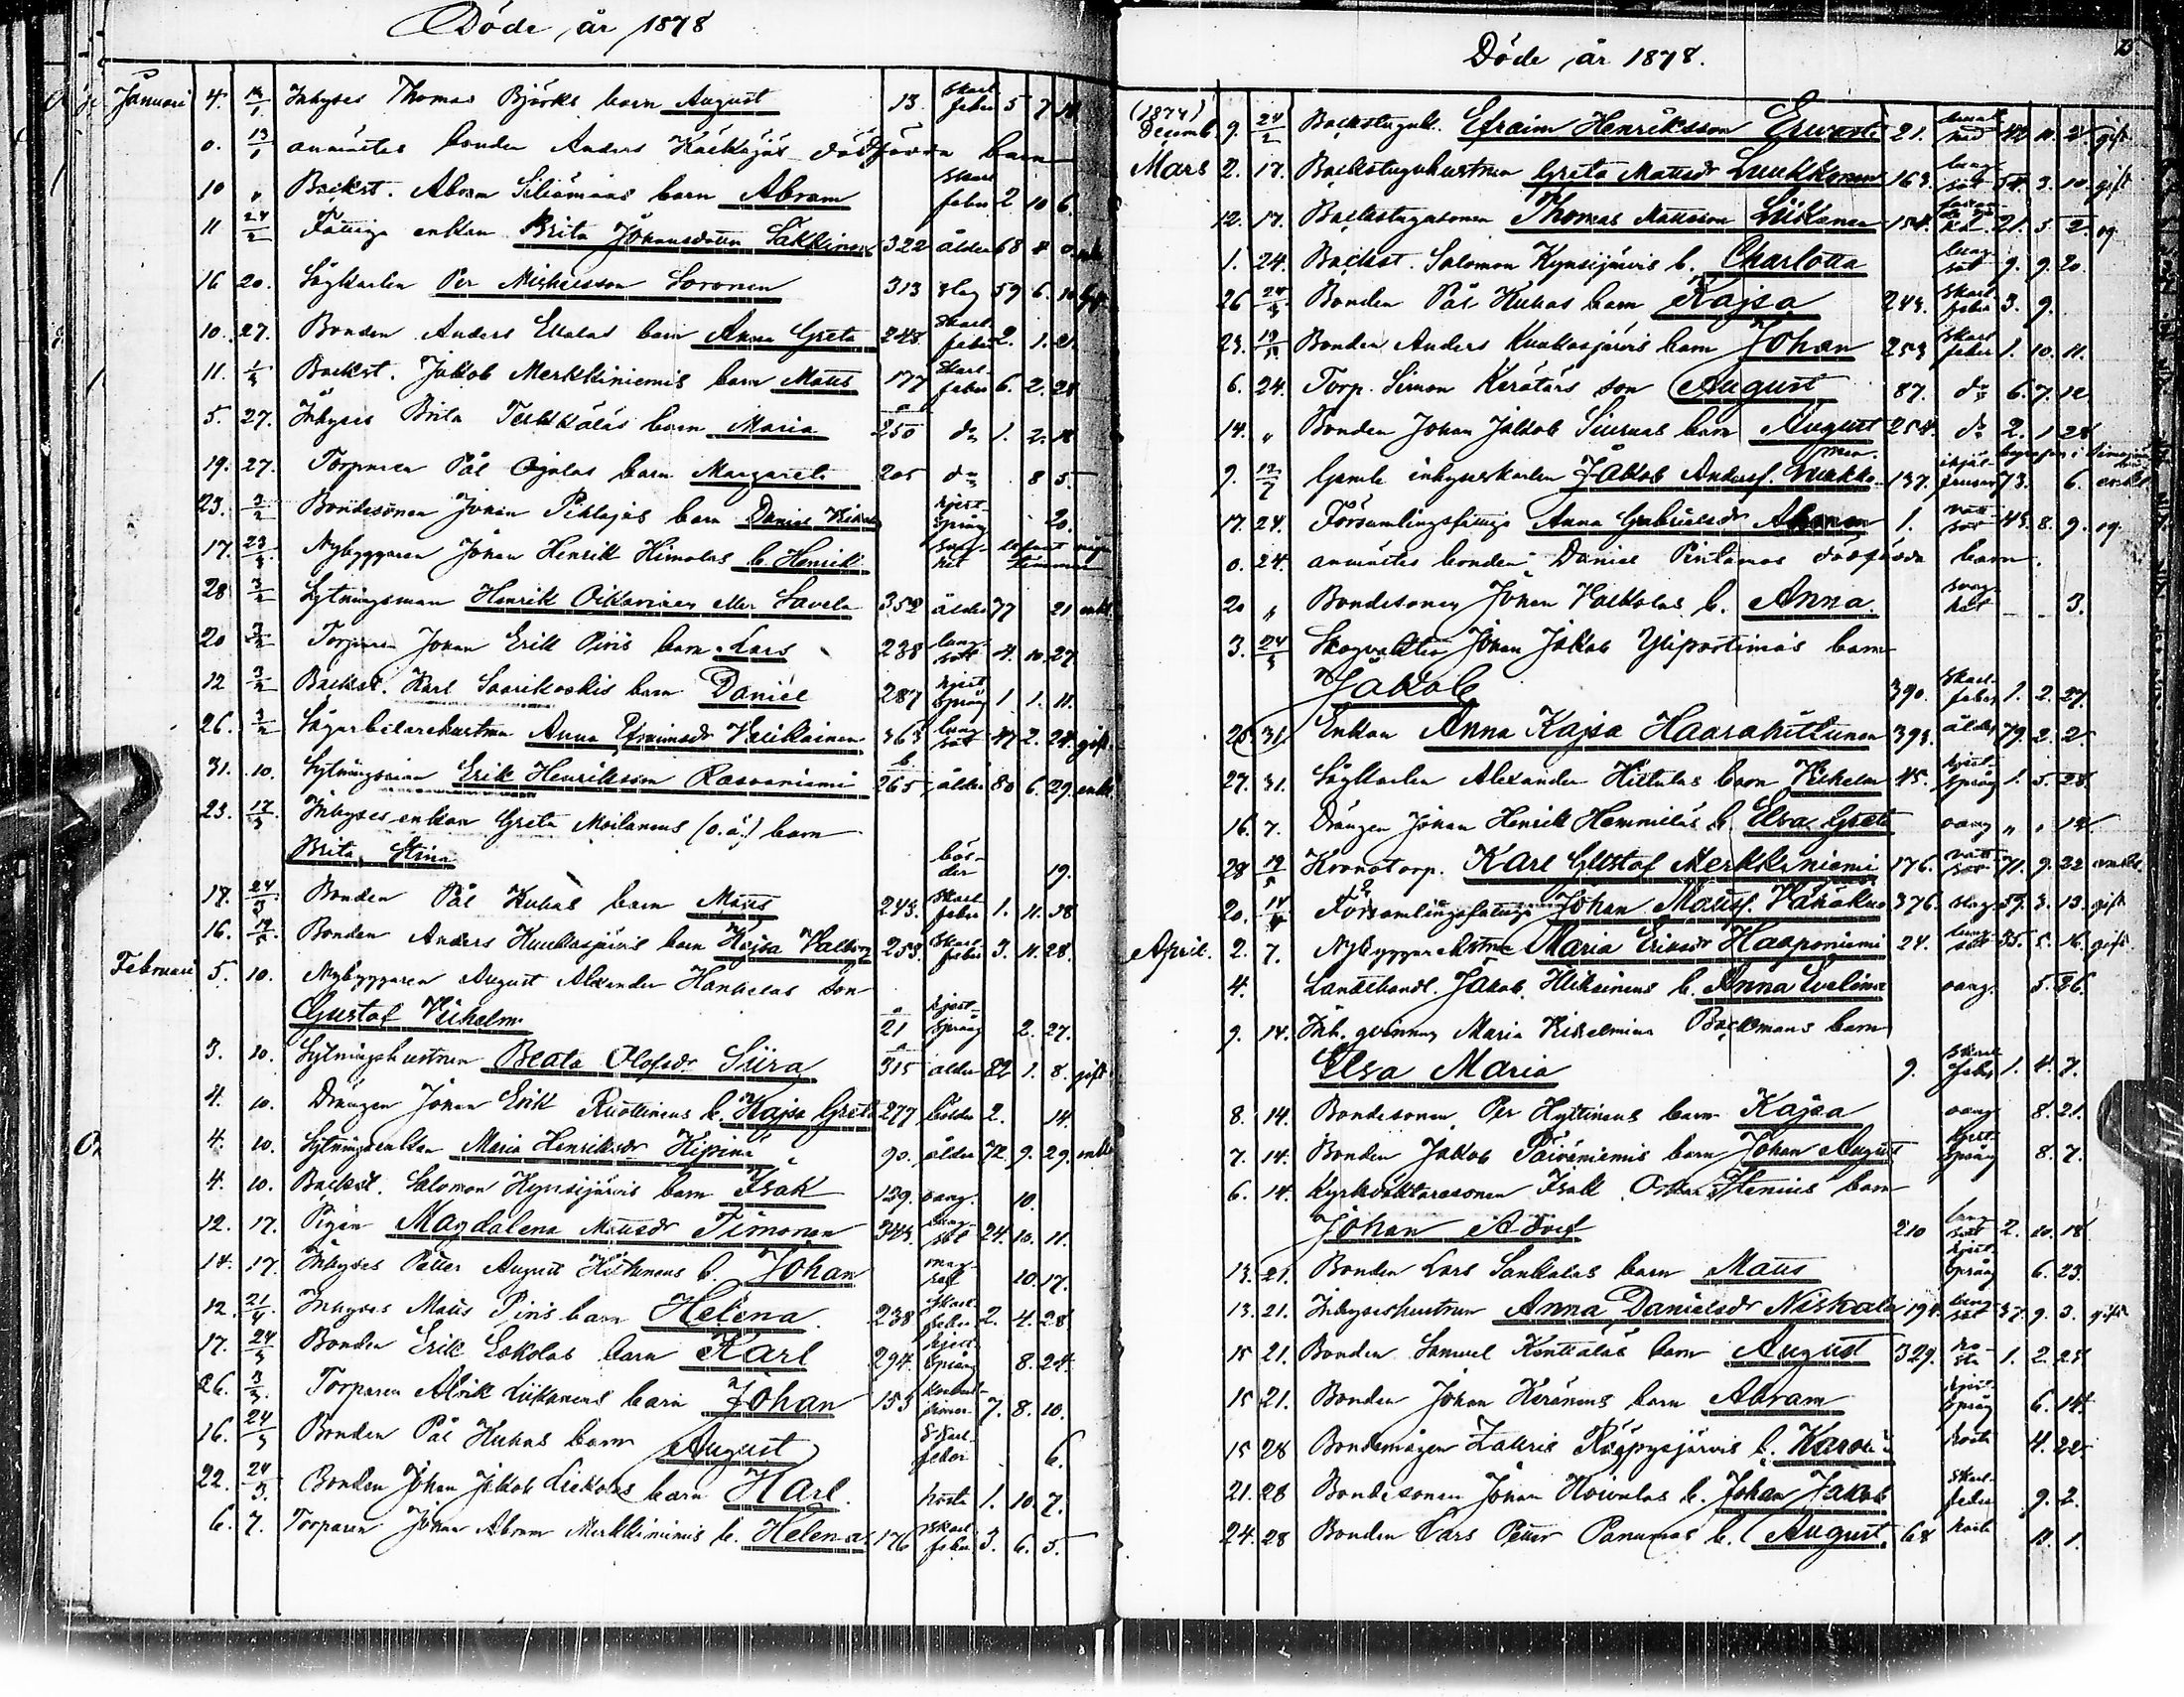 Döde år 1878
Januari 4. 14/1 Inhyses Thomas Björks barn August 13. Skarl. feber 5 7
0. 13/1 anmältes bonden Anders dödfödda barn
10 " Backst. Abram barn Abram Skarl. feber 2 10 6.
11 24/2 Fattige enkan Brita Johansdotter 322 ålder 68 8
16 20. Sågkarlen Per Michelsson Soronen 313 slag 59 6. 10 gift
10. 27. Bonden Anders barn Anna Greta 248 Skarl. feber 2. 1. 21.
11. Backst. Jakob Merkkiniemis barn Matts 177 Skarl. feber 6. 2. 28
5. 27. Inhyses Brita barn Maria 250 do 1. 2. 18
19. 27. Torparen Pål Ojalas barn Margareta 205 do 8 5.
23. 3/2 Bondesonen Johan barn Daniel hjert-språng 20.
17. 23/3 Nybyggaren Johan Henrik Himolas b. Henrik svaghet
28 3/2 Sytningsman Henrik Oikarinen eller Savela 352 ålder 77 21 enkl.
20 3/2 Torparen Johan Erik Piris barn Lars 238 lungsot 4. 10. 27
12 3/2 Backst. Karl Saarikoskis barn Daniel 287 hjertspräng 1 1. 11.
26. 3/2 Sågarbetarehustrun Anna Efraimsdr 363 lungsot 47 2. 24. gift.
31. 10. Sytningsman Erik Henriksson Rasvaniemi 265 ålder 80 6. 29. enkl.
23. 17/3 Inhyses enkan Greta Moilanens (o.ä.) barn
Brita Stina bölder 19.
18. 24/3 Bonden Pål Kuhas barn Matts 243. Skarl. feber 1. 11. 38
16. Bonden Anders Kuukasjärvis barn Kajsa Valborg 253. Skarl. feber 3. 11. 28.
Februari 5. 10. Nybyggaren August Alexander son
Gustaf Vilhelm 21 hjertspräng 2. 27.
3. 10. Sytningshustrun Beata Olofsdr Siira 315 ålder 82 1. 8. gift
4. 10. Drängen Johan Erik Ruottinens b. Kajsa Greta 277 bölder 2. 14.
4. 10. Sytningsenkan Maria Henriksdr 90. ålder 72. 9. 29. enkl.
4. 10. Backst. Salomon Kynsijärvis barn Isak 129. oang. 10.
12. 17. Pigan Magdalena Mattsdr Timonen 343. lungsot 24. 10. 11.
14. 17. Inhyses Petter August b. Johan magsot 10. 17.
12. 21/4 Inhyses Matts Piris barn Helena. 238 Skarl. feber 2. 4. 28.
17. 24/3 Bonden Erik barn Karl 294. hjertspräng 8. 24.
26. 3/3 Torparen Alrik Liikanens barn Johan 153 7. 8. 10.
16. 24/3 Bonden Pål Kuhas barn August Skarl. feber 6.
22. 24/3. Bonden Johan Jakob barn Karl. hosta 1. 10. 7.
6. 7. Torparen Johan Abram Merkkiniemis b. Helena. 176 Skarl. feber 3. 6. 5.
Döde år 1878.
(1877) Decemb. 9. 24/2 Backstugub. Efraim Henriksson Ervasti 21. gift
Mars 2. 17. Backstuguhustrun Greta Mattsdr Luukkonen 163. lungsot 54. 3. 10. gift
12. 17. Backstugusonen Thomas Mattsson Liikanen 154. 21. 5 2. og
1. 24. Backst. Salomon Kynsijärvis b. Charlotta lungsot 9. 9. 20.
26 Bonden Pål Kuhas barn Kajsa 243. Skarl. feber 3. 9.
23. 19/5 Bonden Anders Kuukasjärvis barn Johan 253 Skarl. feber 1. 10. 11.
6. 24. Torp. Simon Keräters son August 87. do 6. 7. 12.
14. " Bonden Johan Jakob Siuruas barn August 254. do 2. 1 28
9. 12/7 Gamle inhyseskarlen Jakob Andersf. 137. ihjälfrusen 73. 6. enkl.
17. 24. Församlingsfattige Anna Gabrielsdr 1. 43. 8. 9. og
0. 24. anmältes bonden Daniel Pintamos dödfödda barn.
20 " Bondesonen Johan b. Anna. svaghet 3.
3. 24/3 Skogvaktar Johan Jakob Yliportimos barn
Jakob 390. Skarl. feber 1. 2. 27.
25. 31. Enkan Anna Kajsa Haarahiltunen 393. ålder 79. 2. 2.
27. 31. Sågkarlen Alexander Hiltulas barn Vilhelm 45. hjertspräng 1. 5. 28.
16. 7. Drängen Johan Henrik Hemmiläs b. Elsa Greta oang " " 12
28 19/5 Kronotorp. Karl Gustaf Merkkiniemi 176. vattsot 71. 9. 22 enkl.
20. 14/4 Församlingsfattige Johan Mattsf. 376. slag 59. 3. 13. gift
April. 2. 7. Nybyggarehustrun Maria Eriksdr Haaponiemi 24. lungsot 35. 5. 16. gift.
4. Landthandl. Jakob b. Anna Evelina oang. 5. 26.
9. 14. Inh. qvinnan Maria Vilhelmina Backmans barn
Elsa Maria 9. Skarl. feber 1. 4. 7.
8. 14. Bondesonen Per Hyttinens barn Kajsa oang 8. 21.
7. 14. Bonden Jakob Päiväniemis barn Johan August hjertspräng 8. 7.
6. 14. Kyrkväktaresonen Isak Oskar Stenius barn
Johan Adolf 210 lungsot 2. 10. 18
13. 21. Bonden Lars Sankalas barn Matts hjertspräng 6. 23.
13. 21. Inhyseshustrun Anna Danielsdr Niskala 194. lungsot 37. 9. 3. gift
15 21. Bonden Samuel barn August 329. hosta 1. 2. 25
15 21. Bonden Johan Keränens barn Abram hjertspräng 6. 14.
15 28 Bondemågen Zakris b. hosta 4. 22.
21. 28 Bondesonen Johan Koivulas b. Johan Jakob Skarl. feber 9. 2.
24. 28 Bonden Lars Petter Panumas b. August. 68 hosta 11. 1.